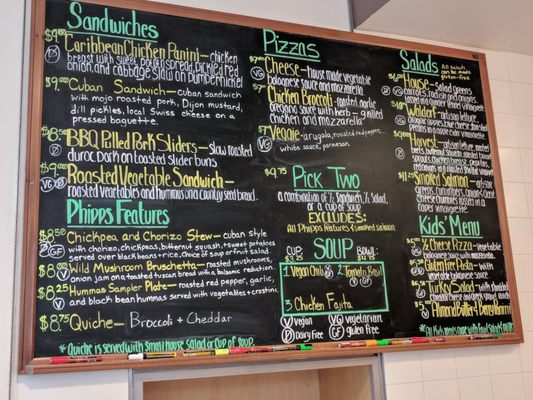 Sandwiches
$9.00 Caribbean Chicken Panini - chicken
breast with sweet potato spread, pickled red
onion, and cabbage slaw on pumpernickel
$9.00 Cuban Sandwich - cuban sandwich
with mojo roasted pork, Dijon mustard,
dill pickles, local Swiss cheese on a
pressed baguette.
$8.50 BBQ Pulled Pork Sliders - slow roasted
duroc pork on toasted slider buns
$9.00 Roasted Vegetable Sandwich -
roasted vegetables and hummus on a country seed bread.
Phipps Features
$8.50 Chickpea and Chorizo Stew - cuban style
with chorizo, chickpeas, butternut squash, sweet potatoes
served over black beans + rice. Choice of soup or fruit salad
$8.00 Wild Mushroom Bruschetta - roasted mushrooms
onion jam on a toasted tuscan bread with a balsamic reduction.
$8.25 Hummas Sampler Plate - roasted red pepper, garlic,
and black bean hummas served with vegetables + crostini
$8.75 Quiche - Broccoli + Cheddar
* Quiche is served with small house salad or cup of soup.
Pizzas
$7 Cheese - house made vegetable
bolognaise sauce and mozzarella
$7 Chicken Broccoli - roasted garlic
oregano sauce with herb-grilled
chicken and mozzarella
$7 Veggie - arugula, roasted red pepper,
white sauce, parmesan.
$9.75 Pick Two
a combination of ½ Sandwich, ½ Salad,
or a cup of soup
EXCLUDES:
All Phipps Features & smoked salmon
SOUP
CUP: $3.25 BOWL: $4.25
1 Vegan Chili 2 Tomato Basil
3 Chicken Fajita
V Vegan VG Vegetarian
D Dairy Free GF Gluten Free
Salads All salads can be made gluten-free
House - Salad greens
carrots, radish and onions
Waldorf - artisan lettuce
Harvest - artisan lettuce, roasted
Smoked Salmon - artisan
vinaigrette
Kids' Menu
½ Cheese Pizza - vegetable
bolognaise sauce
Gluten Free Pasta - with
vegetable bolognaise sauce
Turkey Salad - with shredded
Almond Butter & Berry